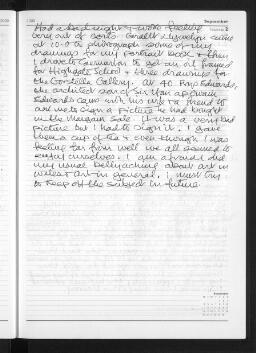 September
Had a bad night & woke feeling
very out of sorts. Gareth came
at 10.0 to photograph some of my
drawings for my Portrait book & then
I drove to Caernarfon to get an oil framed
for Highgate School & three drawings for
the Gallery. At 4.0 Rhys Edwards
the architect and
Edwards came with his wife & friend to
ask me to sign a picture he had bought
in the Sale. It was a very bad
picture but I had to sign it. I gave
them a cup of tea & even though I was
feeling far from well we all seemed to
enjoy ourselves. I am afraid I did
my usual bellyaching about art in
Wales & art in general. I must try
to keep off the subject in future.